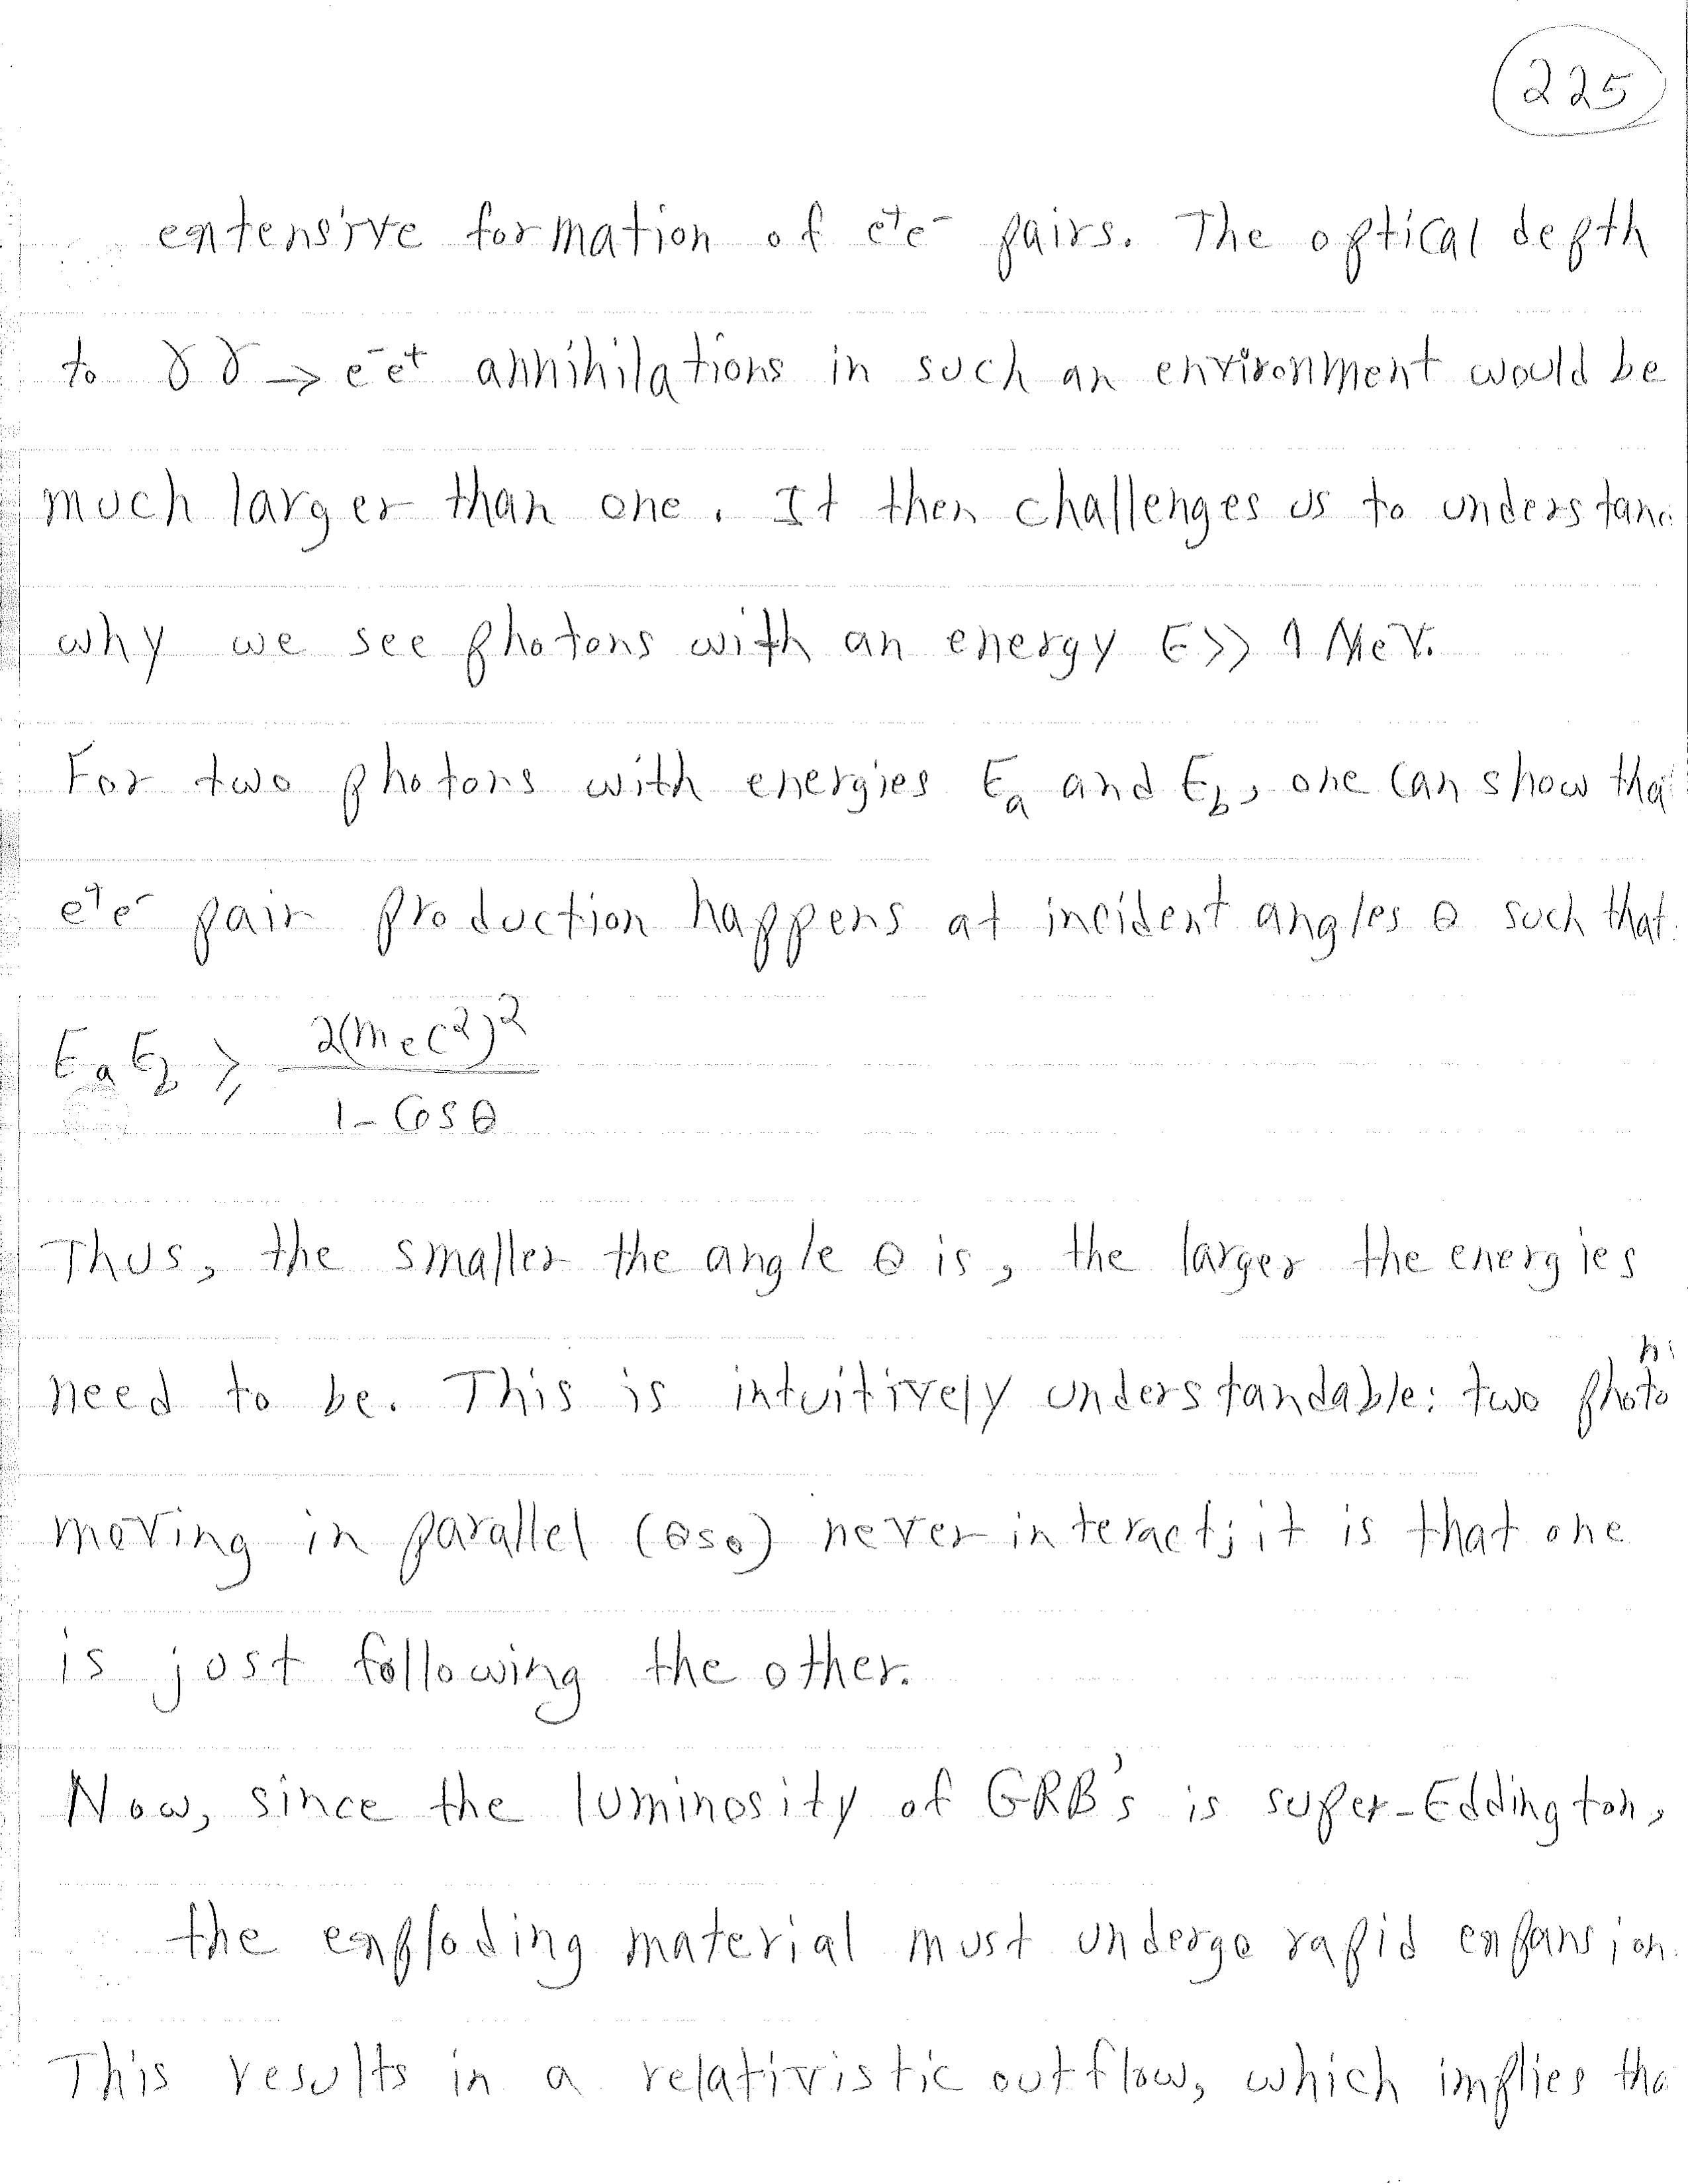 225
extensive formation of e⁺e⁻ pairs. The optical depth
to γγ → e⁻e⁺ annihilations in such an environment would be
much larger than one. It then challenges us to understan
why we see photons with an energy E >> 1 MeV.
For two photons with energies E_a and E_b, one can show tha
e⁺e⁻ pair production happens at incident angles θ such that
E_a E_b ⩾ 2(m_e c²)² / (1 - Cos θ)
Thus, the smaller the angle θ is, the larger the energies
need to be. This is intuitively understandable: two photon
moving in parallel (θ=0) never interact; it is that one
is just following the other.
Now, since the luminosity of GRB's is super-Eddington,
the exploding material must undergo rapid expansion.
This results in a relativistic outflow, which implies tha